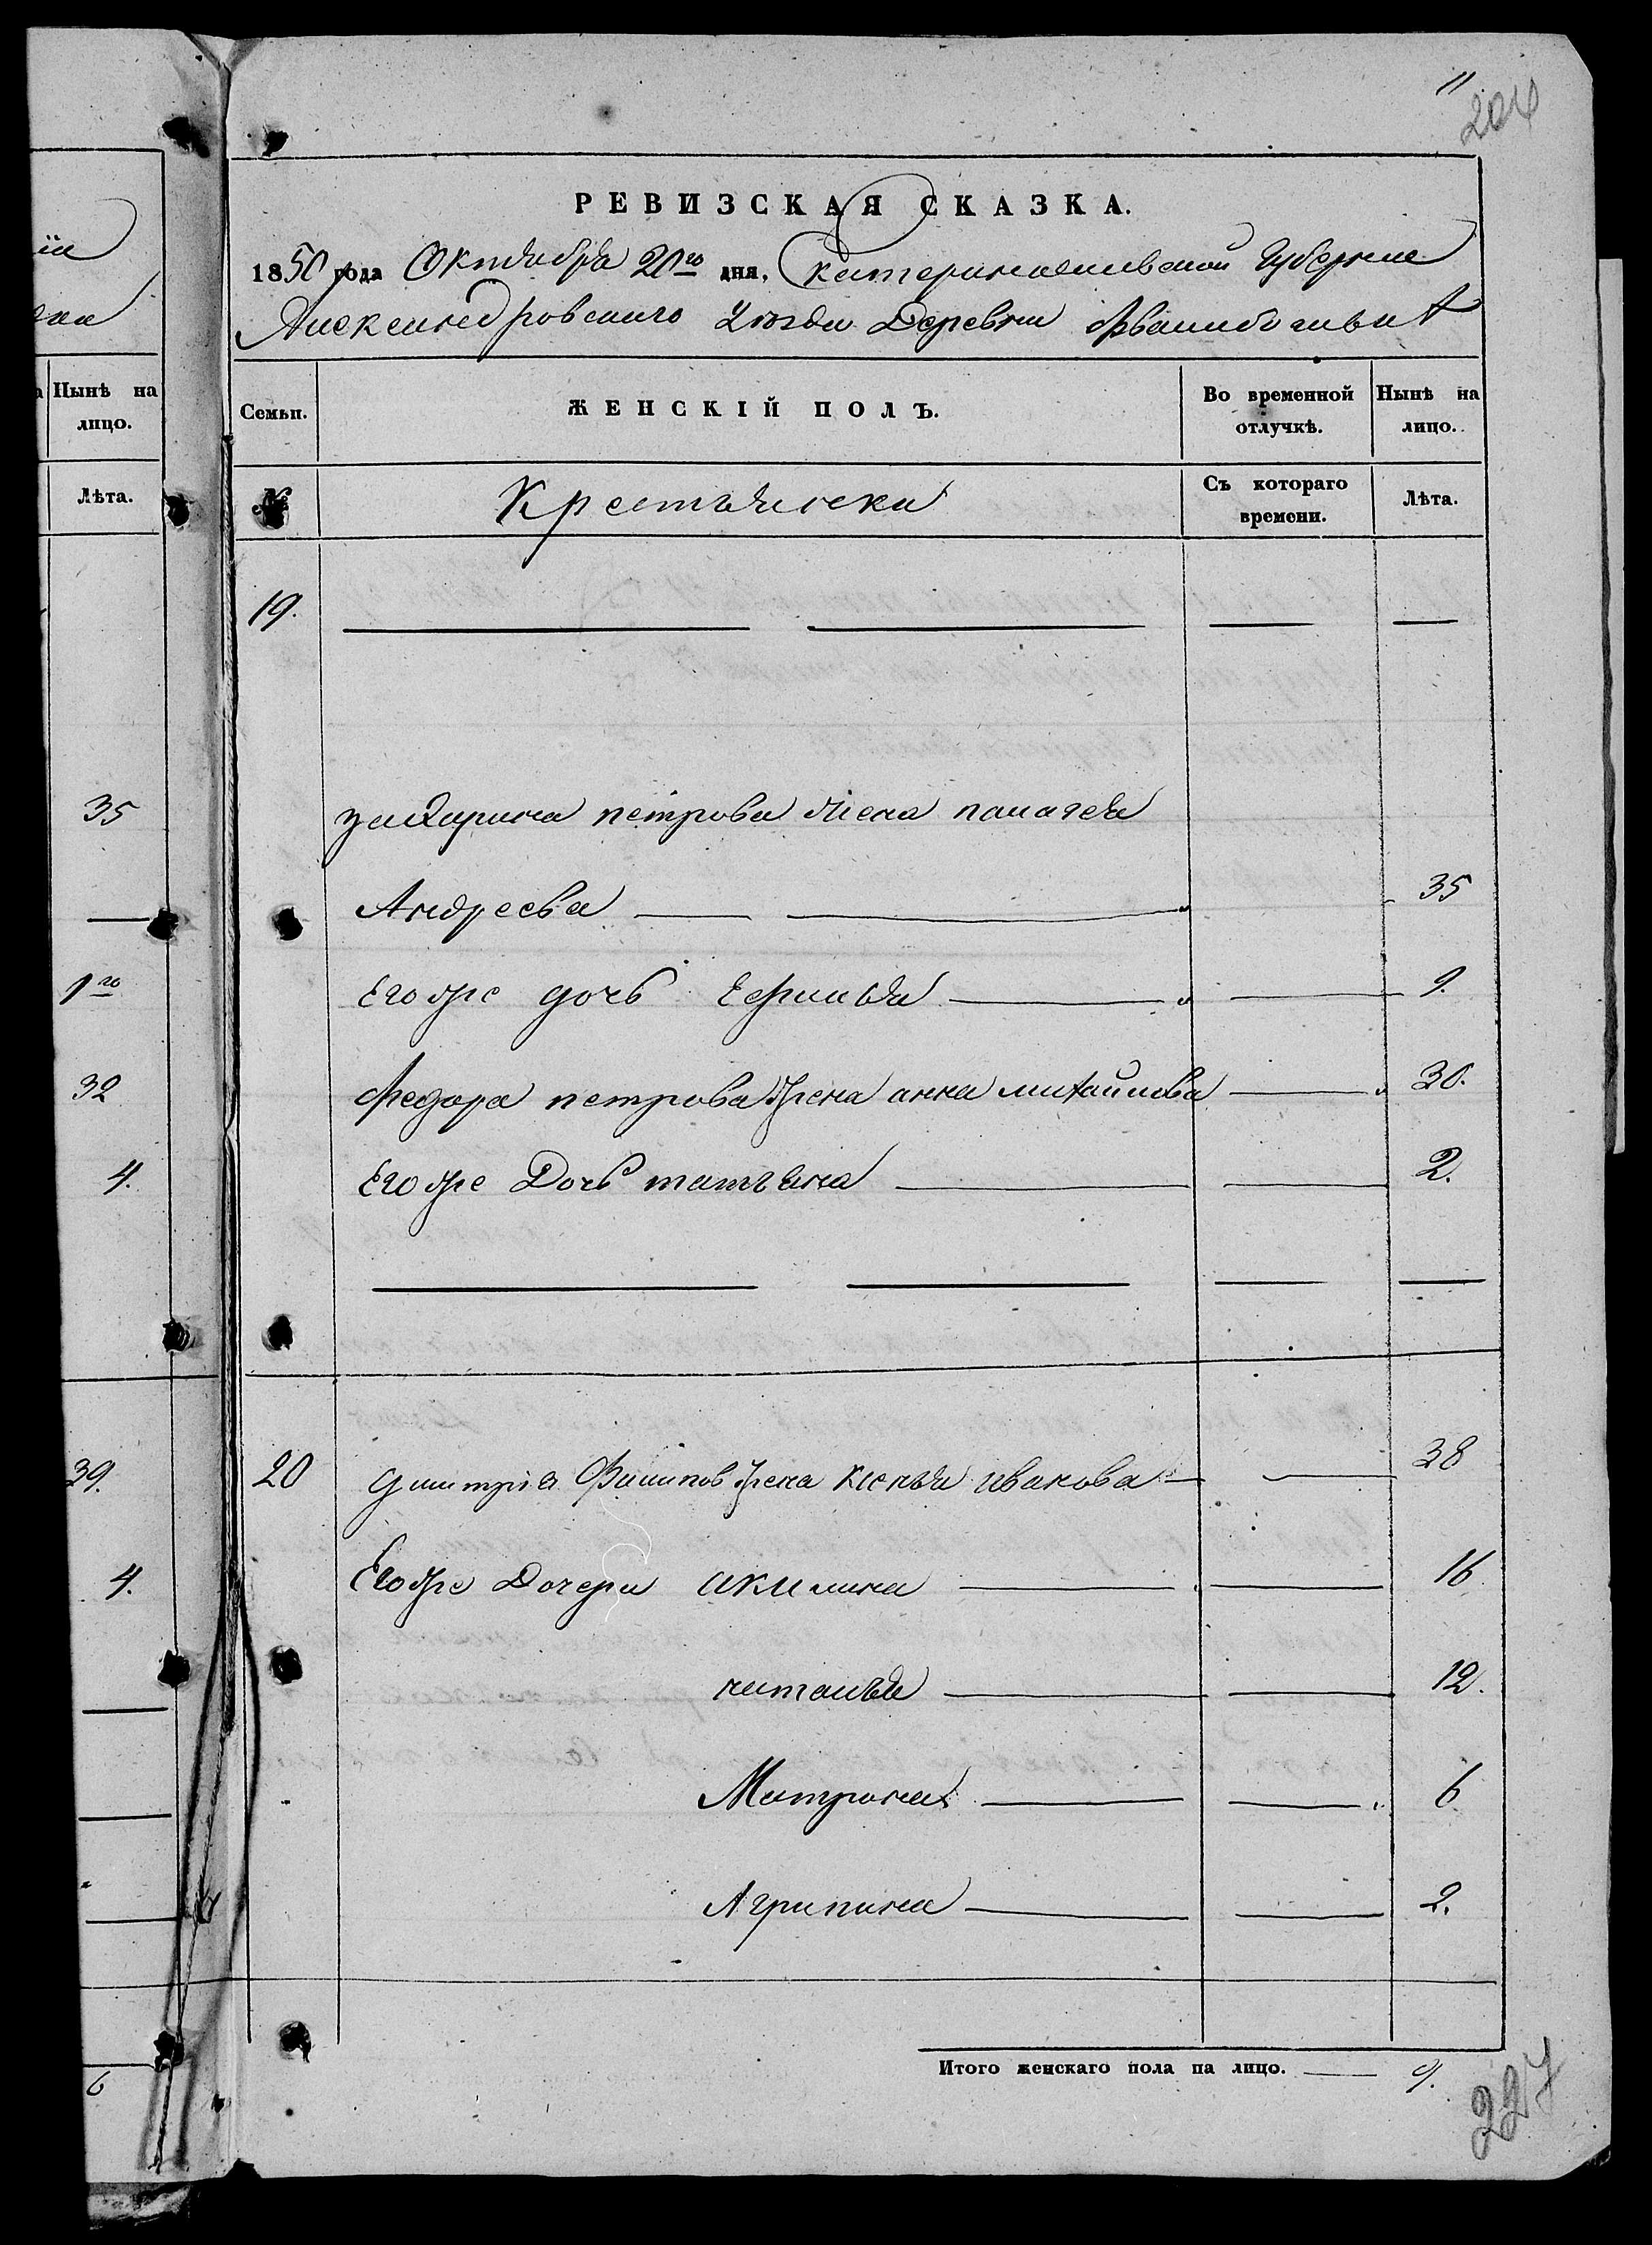 11
204
РЕВИЗСКАЯ СКАЗКА.
1850 года Октября 20го дня, Екатеринославской Губернии
Александровского Уезда Деревни
Нынѣ на лицо.
Лѣта.
Семьи.
ЖЕНСКІЙ ПОЛЪ.
Во временной отлучкѣ.
Нынѣ на лицо.
№
Крестьянски
Съ котораго времени.
Лѣта.
19.
35
захарина петрова жена палагея
Андреева 35
1го
Егоже дочь Ефимья 9.
32
Федора петрова жена анна михайлова 30.
4.
Егоже Дочь татьяна 2.
39.
20 дмитрия Филипов жена ксенья иванова 38
4.
Егоже Дочери акилина 16
наталья 12.
Матрона 6
Агрипина 2.
6
Итого женскаго пола на лицо. 9.
227